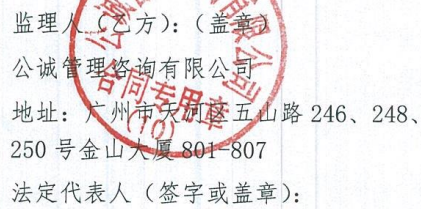 监理人（乙方）：（盖章）
公诚管理咨询有限公司
地址：广州市天河区五山路 246、248、
250 号金山大厦 801-807
法定代表人（签字或盖章）：
合同专用章
(10)